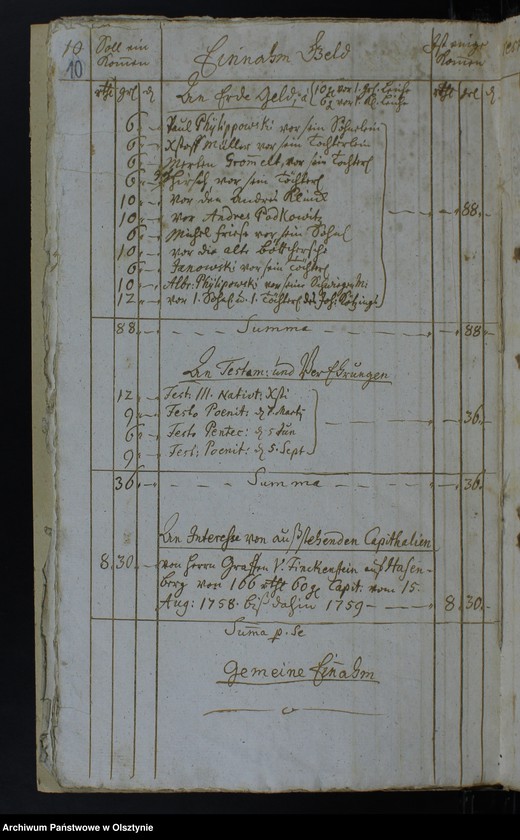 10 Soll ein Einnahm Geld Ist einge
10 Kom̃en Kom̃en
rthl grl ₰ An Erde Geld, a 10 gl vor 1. Gr. Leiche rthl grl ₰
6 gl vor 1. Kl. Leiche
6. Paul Phylippowski vor sein Söhnlein
6. Xstoff Müller vor sein Töchterlein
6. Merten Gromelt, vor sein Töchterl
6. Hirsch vor sein Töchterl
10. Vor den Andres
10. vor Andres Padkowitz 88.
6. Michel Friese vor sein Söhnl
10. vor die alte Böttchersche
6. Janowski vor sein Töchterl
10. Albr: Phylipowski vor seine
12. vor 1. Söhnl u. 1. Töchterl des Joh:
88. Summa 88
An Testam: und Verehrungen
12. Fest: III. Nativt: Xsti
9. Festo Poenit: d 7 Martj 36.
6. Festo Pentec: d 5 Jun
9. Fest: Poenit: d 5. Sept
36. Summa 36.
An Interesse von außstehenden Capithalien
8. 30. von Herrn Graffen V. Finckenstein auf Hasen-
berg von 166 rthl 60 gl Capit. vom 15.
Aug: 1758. biß dahin 1759 8. 30.
Sum̃a p. se
Gemeine Einahm
Archiwum Państwowe w Olsztynie